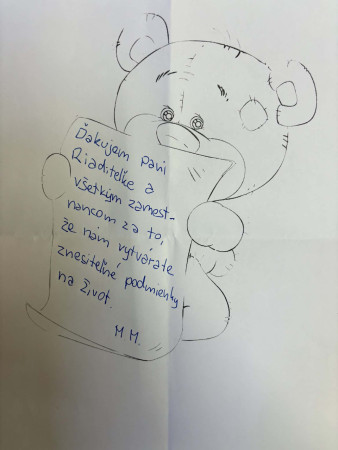 Ďakujem pani
Riaditeľke a
všetkým zamest-
nancom za to,
že nám vytvárate
znesiteľné podmienky
na život.
M M.